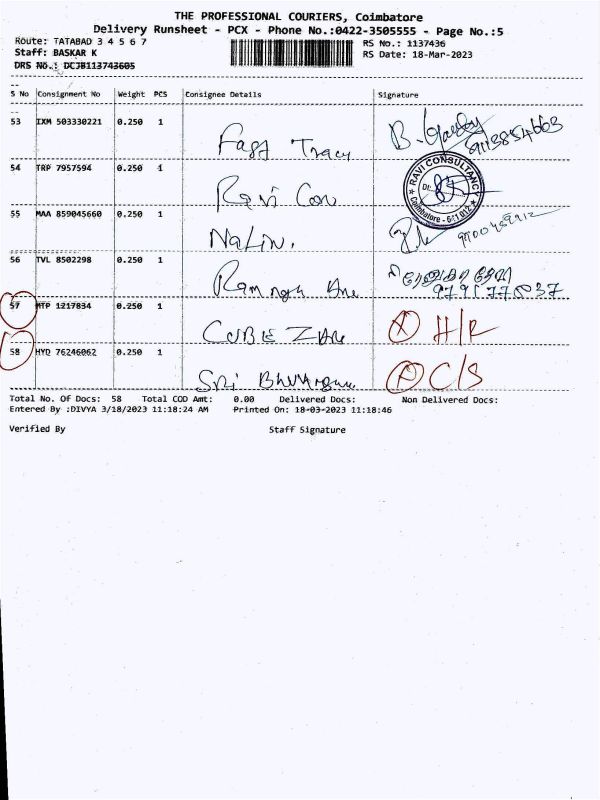 THE PROFESSIONAL COURIERS, Coimbatore
Delivery Runsheet - PCX - Phone No.:0422-3505555 - Page No.:5
Route: TATABAD 3 4 5 6 7
RS No.: 1137436
Staff: BASKAR K
RS Date: 18-Mar-2023
DRS No.: DCJB113743605
S No Consignment No Weight PCS Consignee Details Signature
53 IXM 503330221 0.250 1
54 TRP 7957594 0.250 1 Ravi Con
RAVI CONSULTANCY
Coimbatore - 641 012
55 MAA 859045660 0.250 1 Nalin.
56 TVL 8502298 0.250 1
57 HTP 1217834 0.250 1 CUBE H/R
58 HYD 76246062 0.250 1 Sri C/S
Total No. OF Docs: 58 Total COD Amt: 0.00 Delivered Docs: Non Delivered Docs:
Entered By :DIVYA 3/18/2023 11:18:24 AM Printed On: 18-03-2023 11:18:46
Verified By Staff Signature